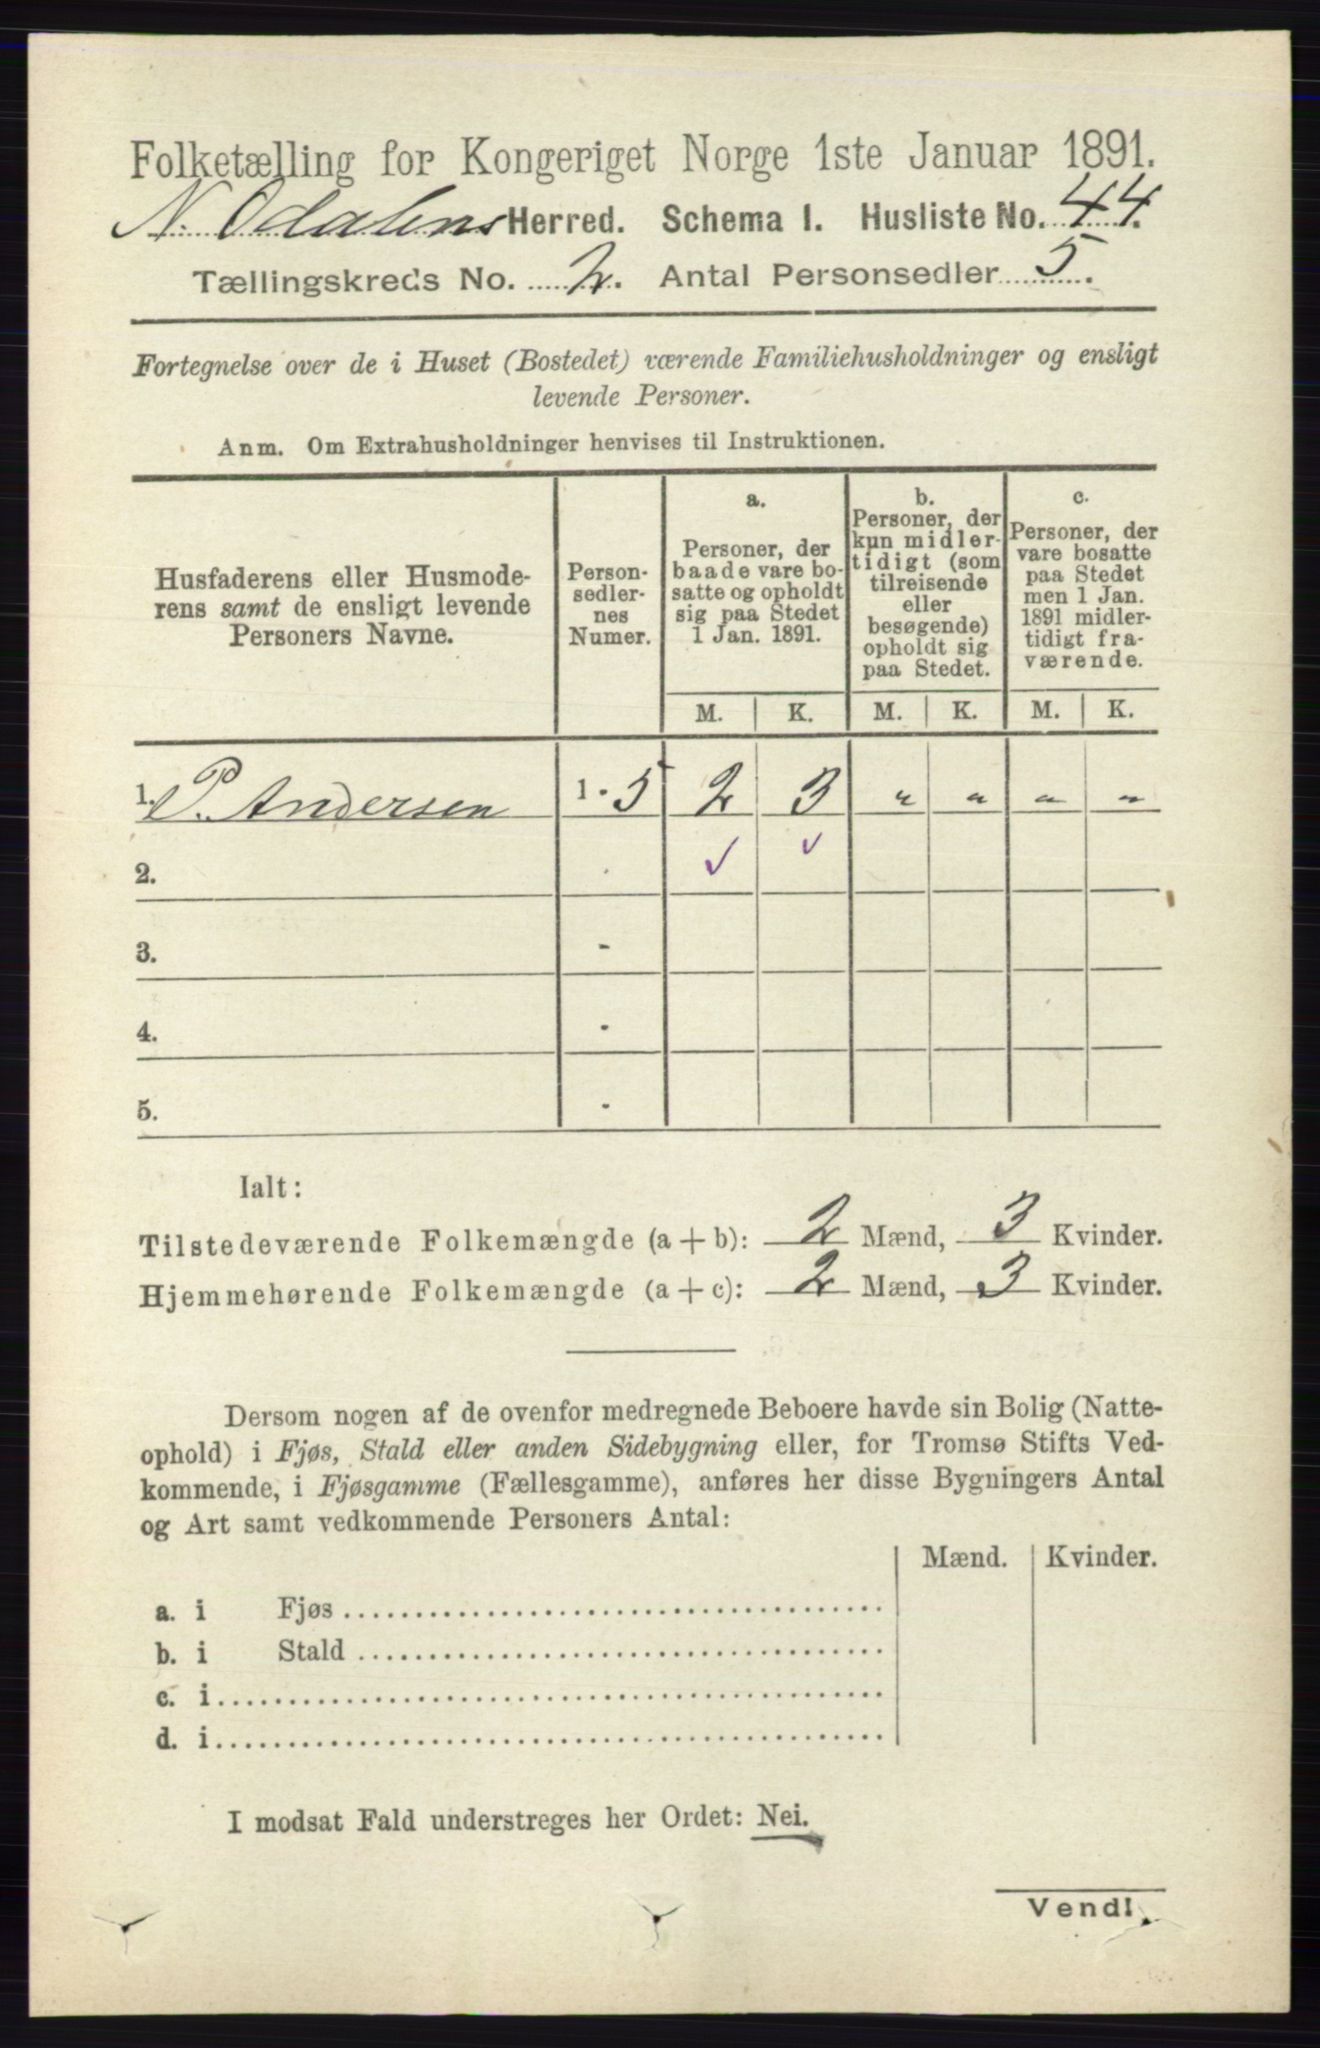 Folketælling for Kongeriget Norge 1ste Januar 1891.
N. Odalens Herred. Schema I. Husliste No. 44.
Tællingskreds No. 2. Antal Personsedler 5.
Fortegnelse over de i Huset (Bostedet) værende Familiehusholdninger og ensligt
levende Personer.
Anm. Om Extrahusholdninger henvises til Instruktionen.
Husfaderens eller Husmode-
rens samt de ensligt levende
Personers Navne.
Person-
sedler-
nes
Numer.
a.
Personer, der
baade vare bo-
satte og opholdt
sig paa Stedet
1 Jan. 1891.
b.
Personer, der
kun midler-
tidigt (som
tilreisende
eller
besøgende)
opholdt sig
paa Stedet.
c.
Personer, der
vare bosatte
paa Stedet
men 1 Jan.
1891 midler-
tidigt fra-
værende.
M. K. M. K. M. K.
1. P. Andersen 1 - 5 2 3 " " " "
2. - ✓ ✓
3. -
4. -
5. -
Ialt:
Tilstedeværende Folkemængde (a + b): 2 Mænd, 3 Kvinder.
Hjemmehørende Folkemængde (a + c): 2 Mænd, 3 Kvinder.
Dersom nogen af de ovenfor medregnede Beboere havde sin Bolig (Natte-
ophold) i Fjøs, Stald eller anden Sidebygning eller, for Tromsø Stifts Ved-
kommende, i Fjøsgamme (Fællesgamme), anføres her disse Bygningers Antal
og Art samt vedkommende Personers Antal:
Mænd. Kvinder.
a. i Fjøs
b. i Stald
c. i
d. i
I modsat Fald understreges her Ordet: Nei.
Vend!